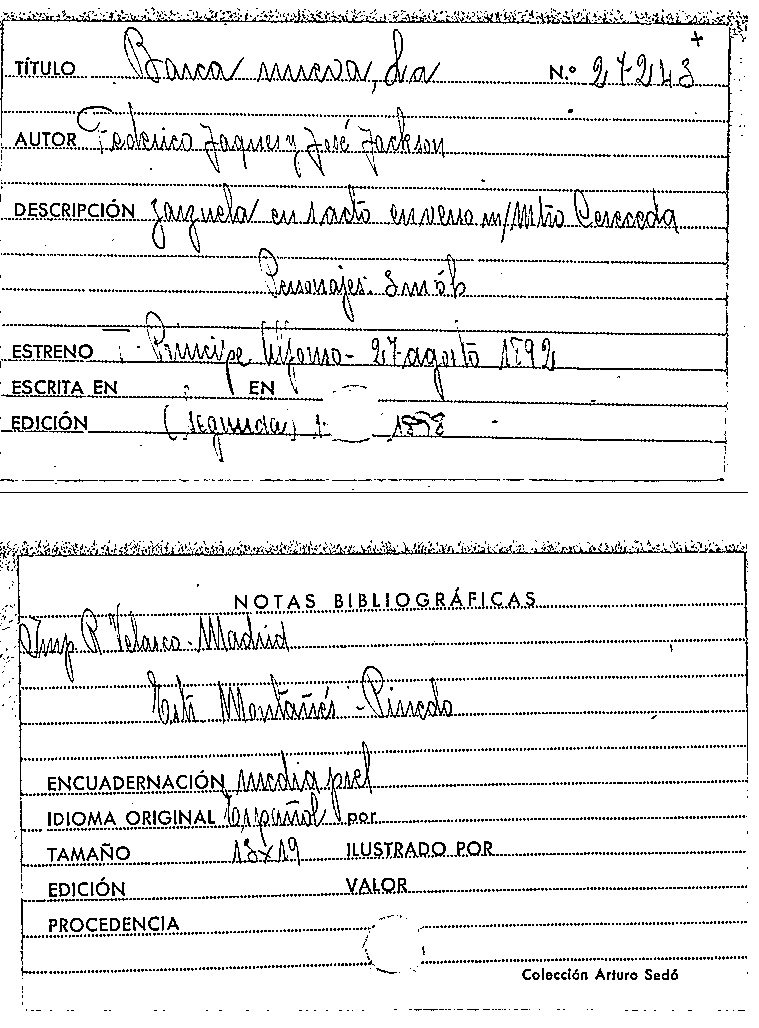 +
TÍTULO Barca nueva, La N.º 27-243
AUTOR Federico Jaques y José Jackson
DESCRIPCIÓN Zarzuela en 1 acto en verso m/ Mtro Cereceda
Personajes. 5 m 6 h
ESTRENO T- Príncipe Alfonso- 27 agosto 1892
ESCRITA EN EN
EDICIÓN (Segunda) 1898
NOTAS BIBLIOGRÁFICAS
Imp. R Velasco- Madrid
Montañés - Pinedo
ENCUADERNACIÓN media piel
IDIOMA ORIGINAL Español por
TAMAÑO 13x19 ILUSTRADO POR
EDICIÓN VALOR
PROCEDENCIA
Colección Arturo Sedó